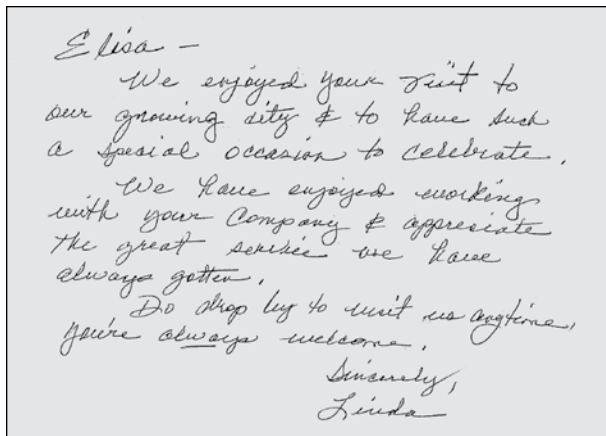 Elisa –
We enjoyed your visit to
our growing city & to have such
a special occasion to celebrate.
We have enjoyed working
with your Company & appreciate
the great service we have
always gotten.
Do drop by to visit us anytime,
you're always welcome.
Sincerely,
Linda